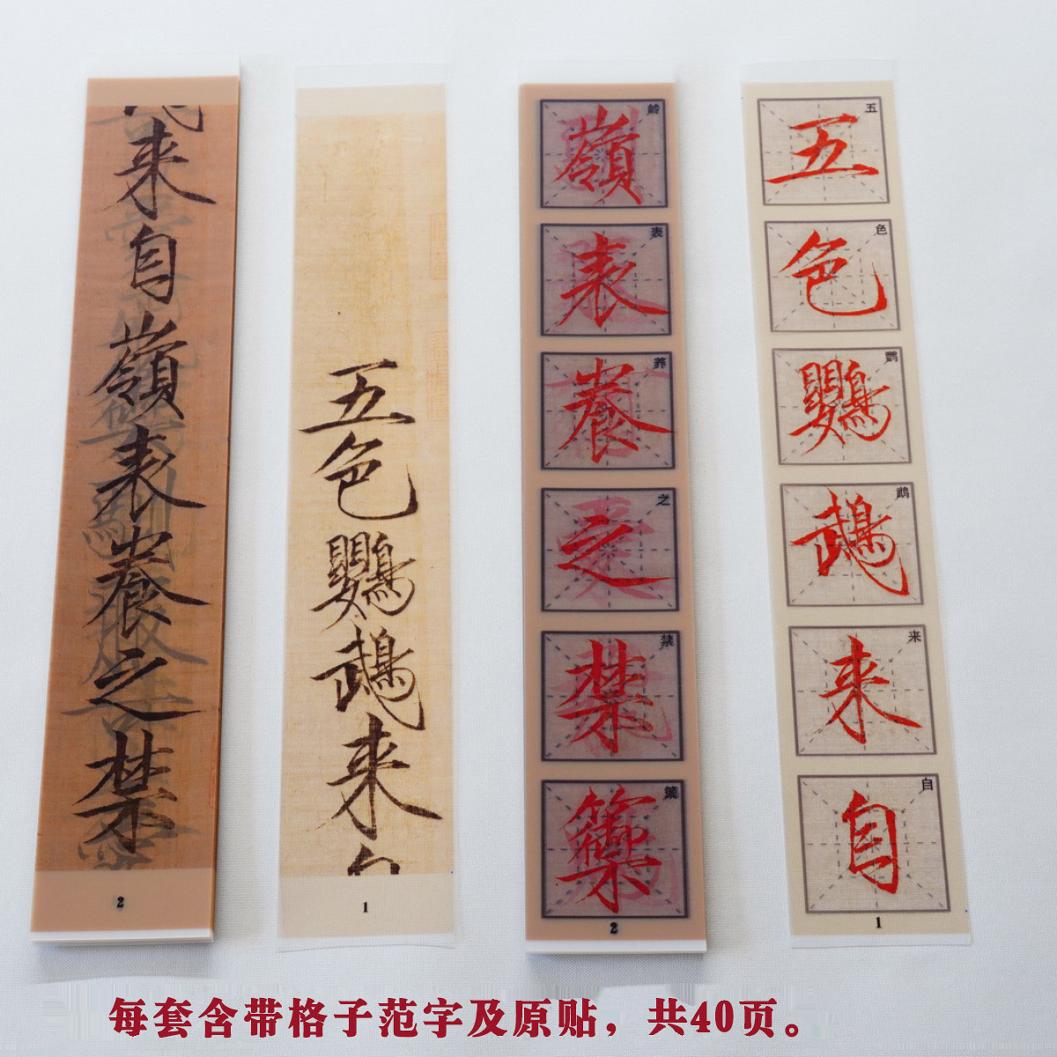 来自嶺表養之禁
2
五色鸚鵡来
1
岭
嶺
表
表
养
養
之
之
禁
禁
籞
2
五
五
色
色
鹦
鸚
鹉
鵡
来
来
自
自
1
每套含带格子范字及原贴，共40页。